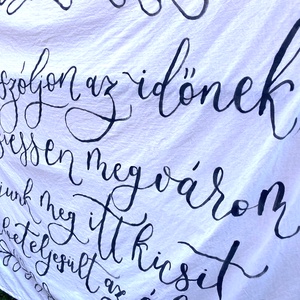 szóljon az időnek
siessen megvárom
junk meg itt kicsit
beteljesült az